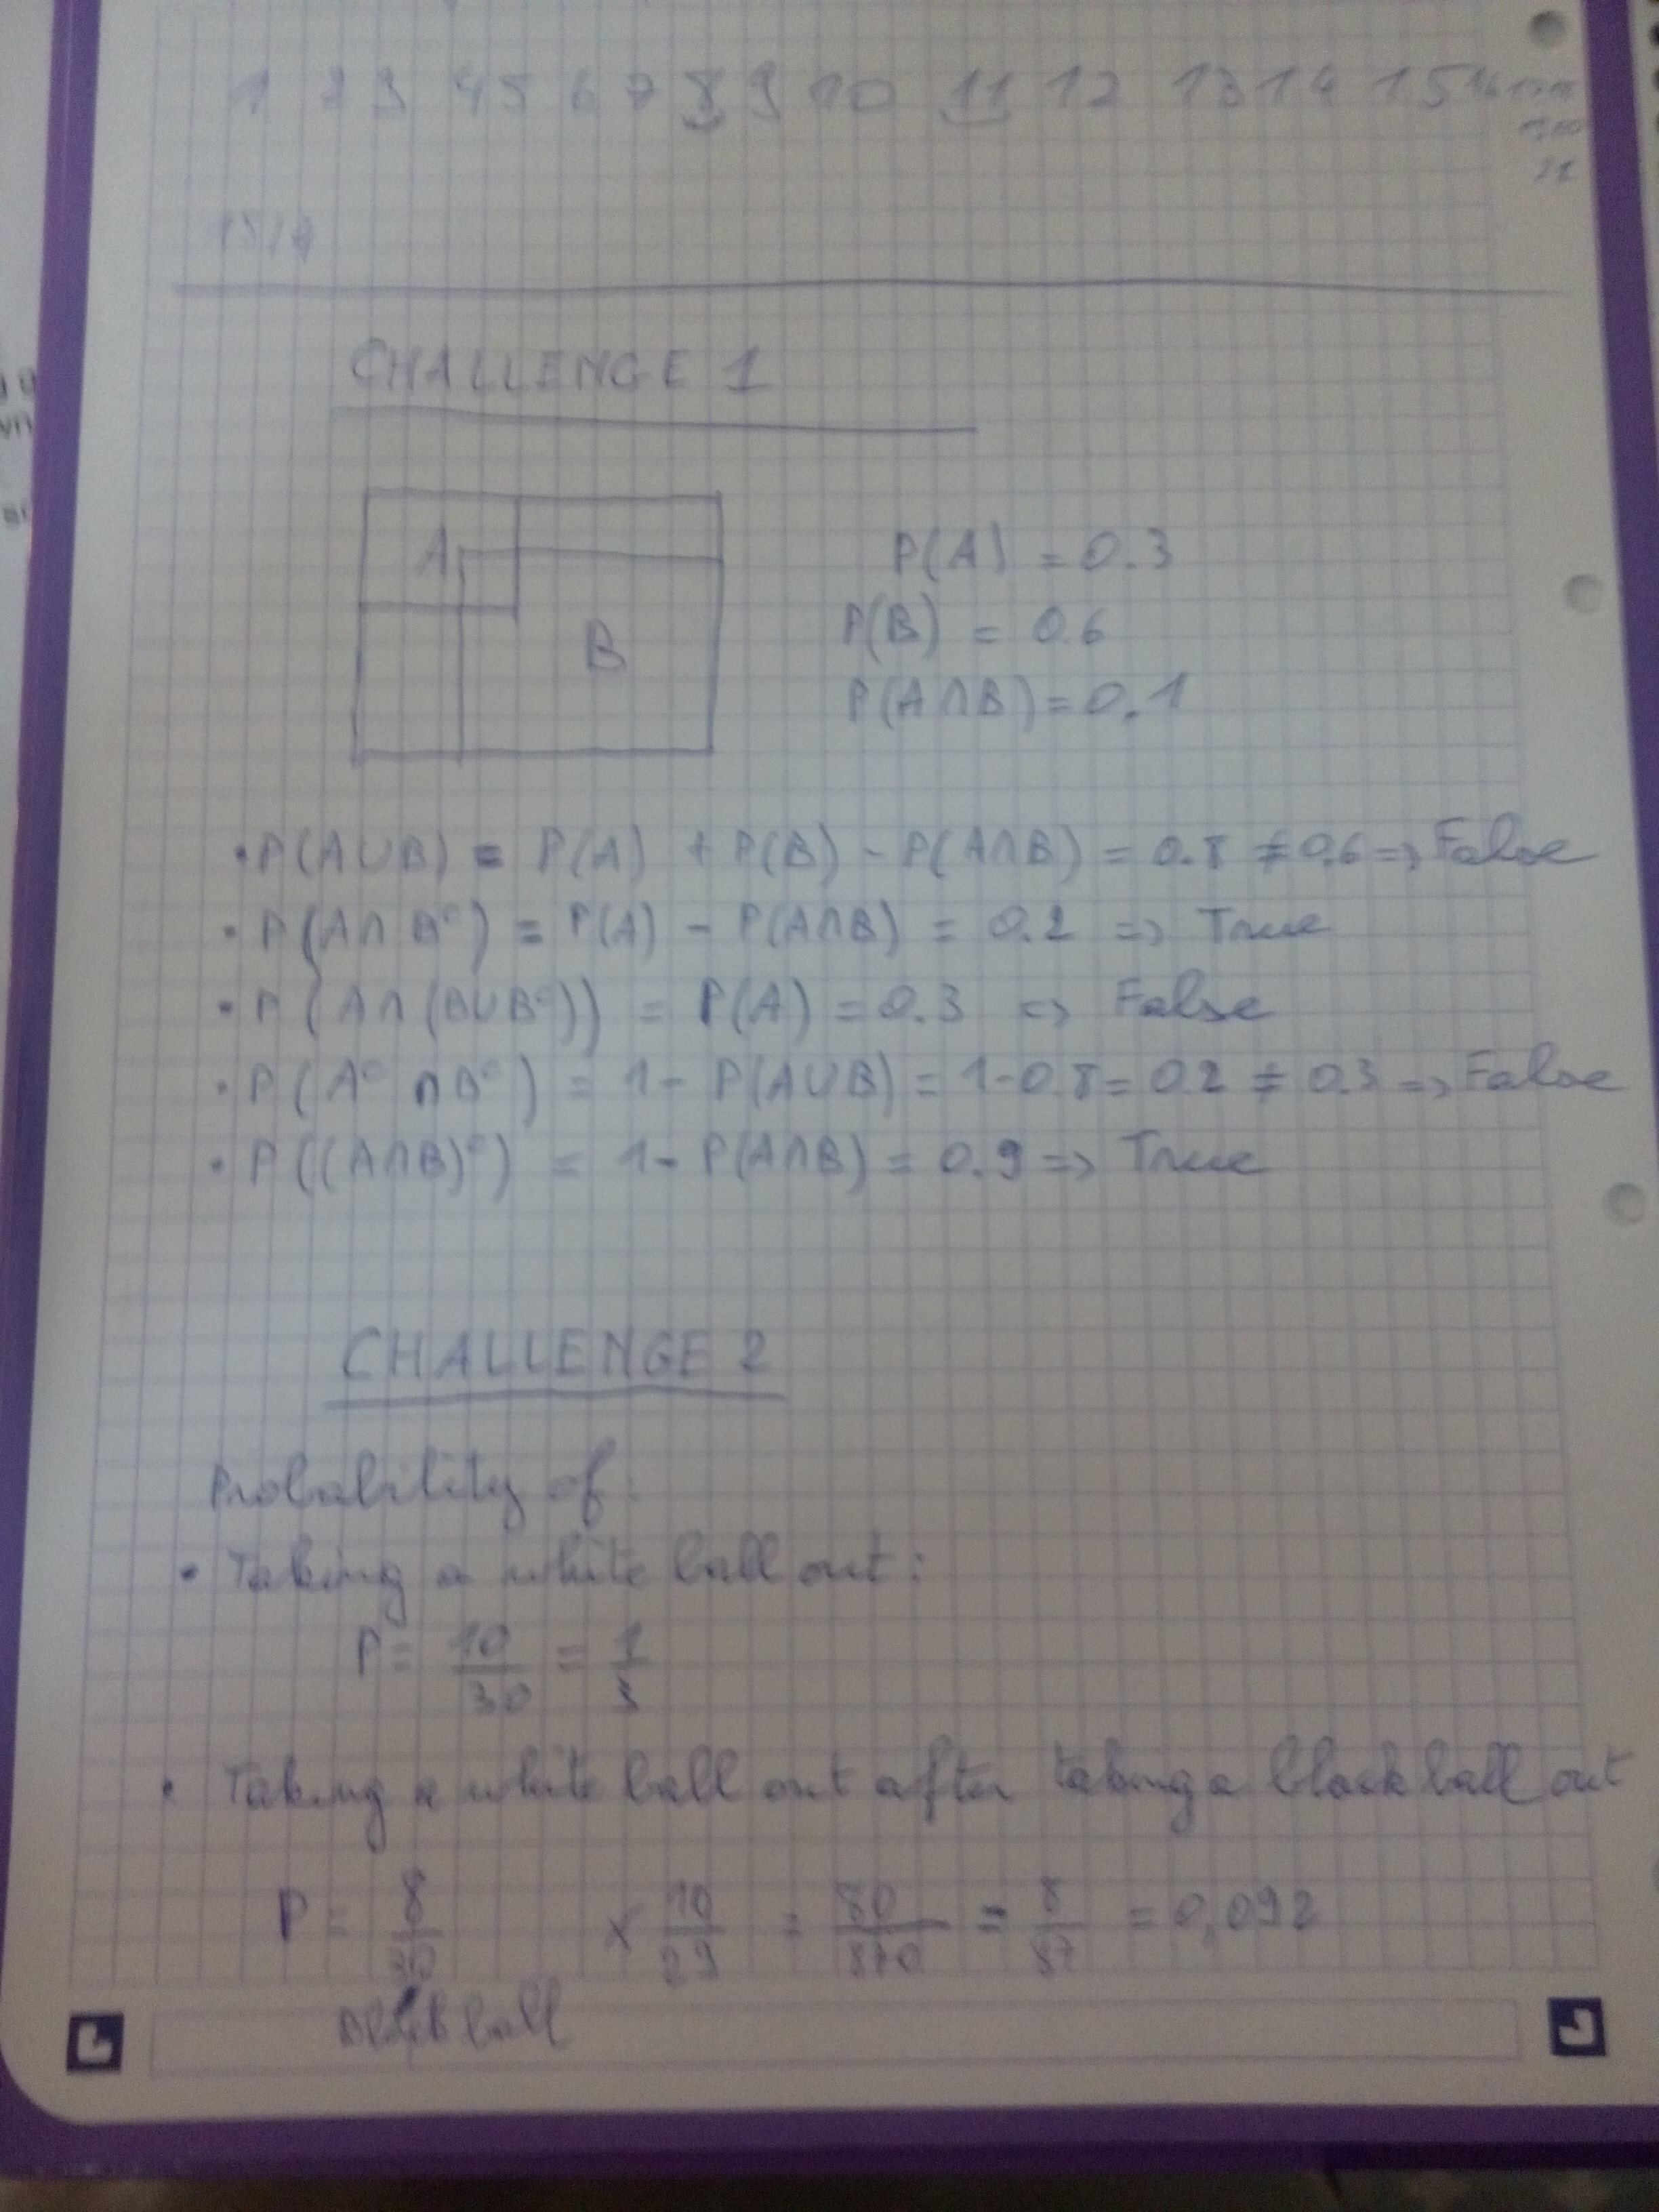 1 2 3 4 5 6 7 8 9 10 11 12 13 14 15 16
21
CHALLENGE 1
A
B
P(A) = 0.3
P(B) = 0.6
P(A∩B) = 0.1
• P(A∪B) = P(A) + P(B) - P(A∩B) = 0.8 ≠ 0.6 => False
• P(A∩B^c) = P(A) - P(A∩B) = 0.2 => True
• P(A∩(B∪B^c)) = P(A) = 0.3 => False
• P(A^c ∩ B^c) = 1 - P(A∪B) = 1-0.8 = 0.2 ≠ 0.3 => False
• P((A∩B)^c) = 1 - P(A∩B) = 0.9 => True
CHALLENGE 2
Probability of:
• Taking a white ball out:
P = 10/30 = 1/3
• Taking a white ball out after taking a black ball out
P = 8/30 × 10/29 = 80/870 = 8/87 = 0,092
Black ball